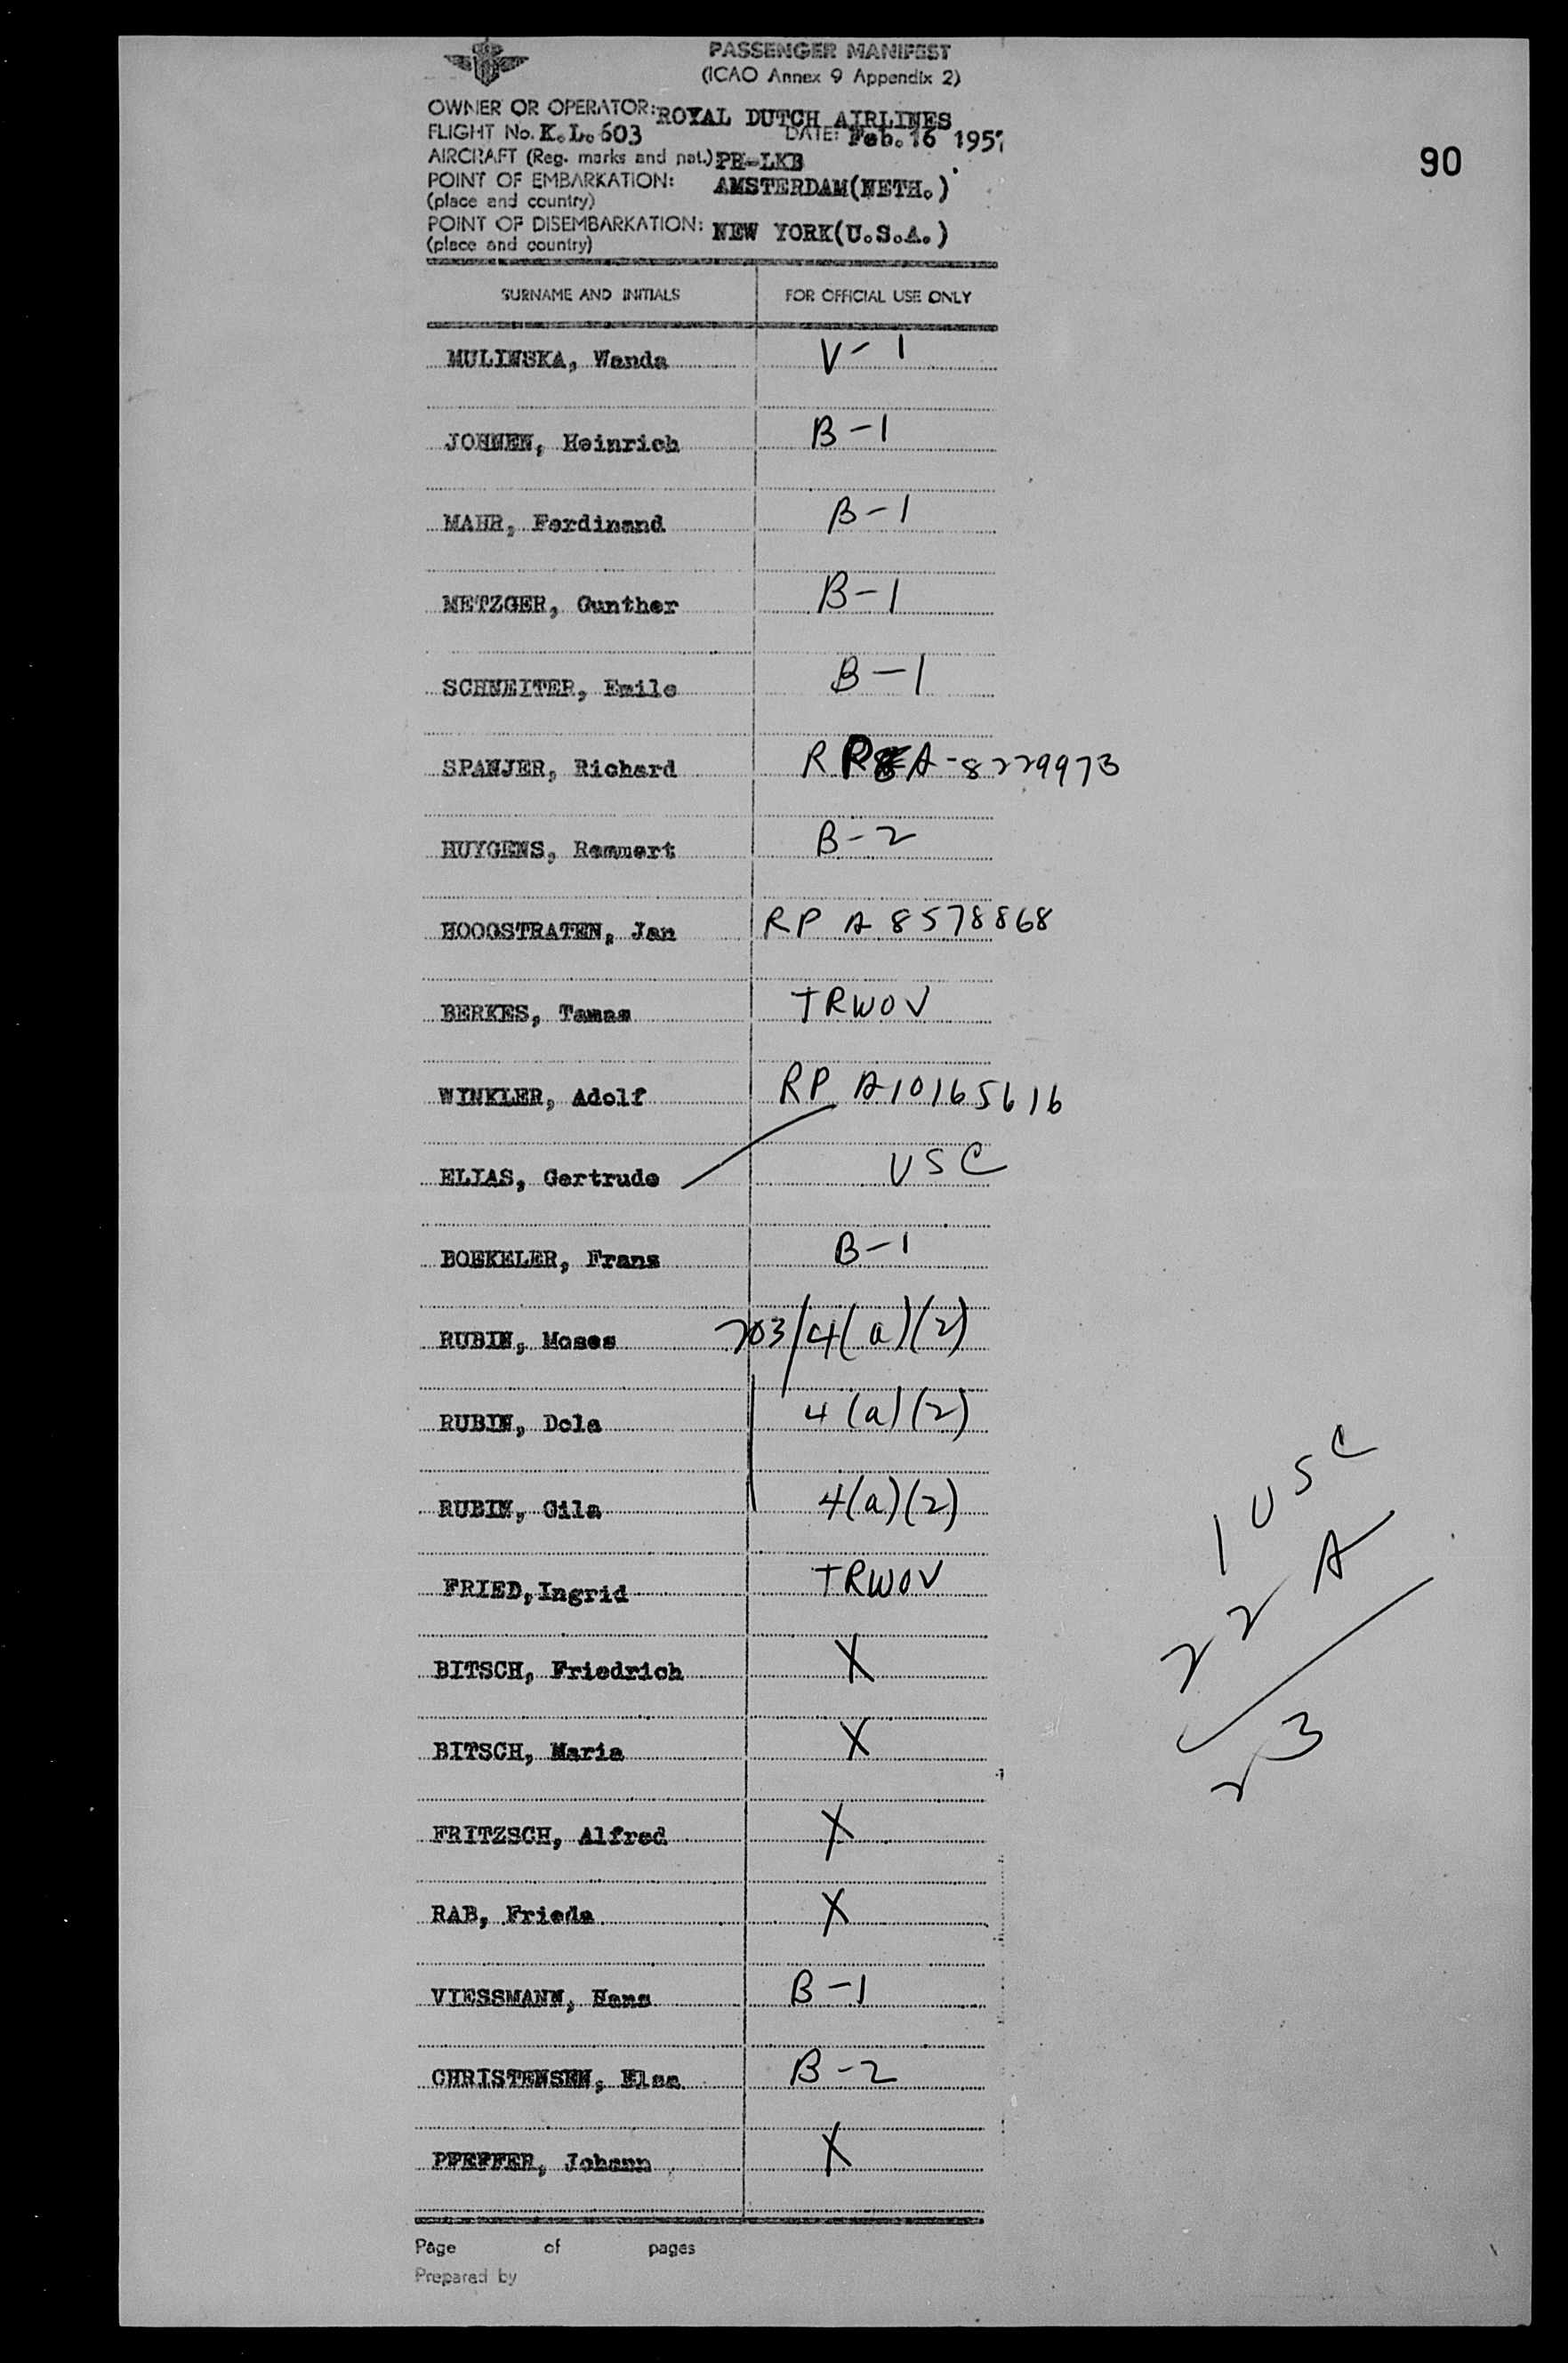 PASSENGER MANIFEST
(ICAO Annex 9 Appendix 2)
90
OWNER OR OPERATOR: ROYAL DUTCH AIRLINES
FLIGHT No. K.L. 603 DATE: Feb. 16 195
AIRCRAFT (Reg. marks and nat.) PH-LKB
POINT OF EMBARKATION: AMSTERDAM(NETH.)
(place and country)
POINT OF DISEMBARKATION: NEW YORK(U.S.A.)
(place and country)
SURNAME AND INITIALS FOR OFFICIAL USE ONLY
MULINSKA, Wanda V-1
JOHNEN, Heinrich B-1
MAHR, Ferdinand B-1
METZGER, Gunther B-1
SCHNEITER, Emile B-1
SPANJER, Richard R P A-8229973
HUYGENS, Remmert B-2
HOOGSTRATEN, Jan RP A 8578868
BERKES, Tamas TRWOV
WINKLER, Adolf RP A10165616
ELIAS, Gertrude USC
BOEKELER, Frans B-1
RUBIN, Moses 703/4(a)(2)
RUBIN, Dola 4(a)(2)
RUBIN, Gila 4(a)(2)
FRIED, Ingrid TRWOV
BITSCH, Friedrich X
BITSCH, Maria X
FRITZSCH, Alfred X
RAB, Frieda X
VIESSMANN, Hans B-1
CHRISTENSEN, Elsa B-2
PFEFFER, Johann X
1 USC
22 A
23
Page of pages
Prepared by